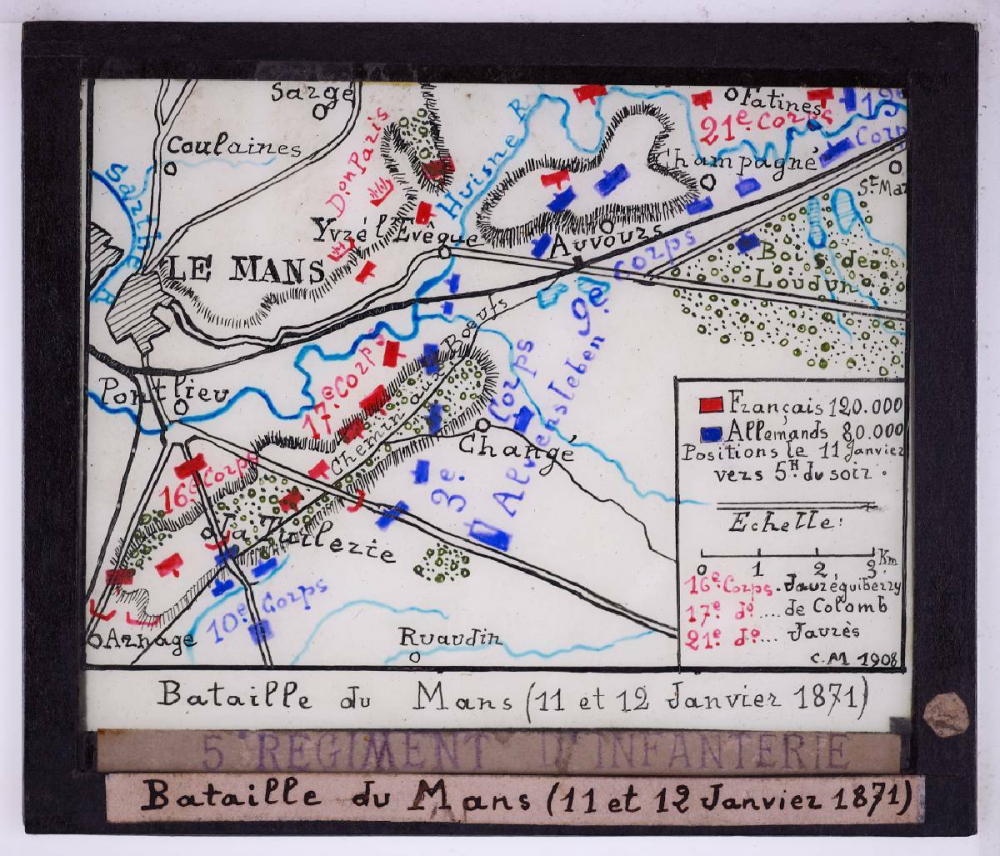 Sargé
Fatines
21e Corps
Coulaines
Don Paris
Huisne R
Champagné
Corp
St Mar
Sarthe R
Yvré l'Evêque
Auvours
LE MANS
9e Corps
Bois de
Loudun
Chemin aux Boeufs
17e Corps
Pontlieu
Changé
3e Corps
Alvensleben
16e Corps
La Tuilerie
10e Corps
Arnage
Ruaudin
Français 120.000
Allemands 80.000
Positions le 11 Janvier
vers 5H du soir.
Echelle:
0 1 2 3 Km
16e Corps. Jauréguiberry
17e do.... de Colomb
21e do.... Jaurès
C.M 1908
Bataille du Mans (11 et 12 Janvier 1871)
5e REGIMENT D'INFANTERIE
Bataille du Mans (11 et 12 Janvier 1871)